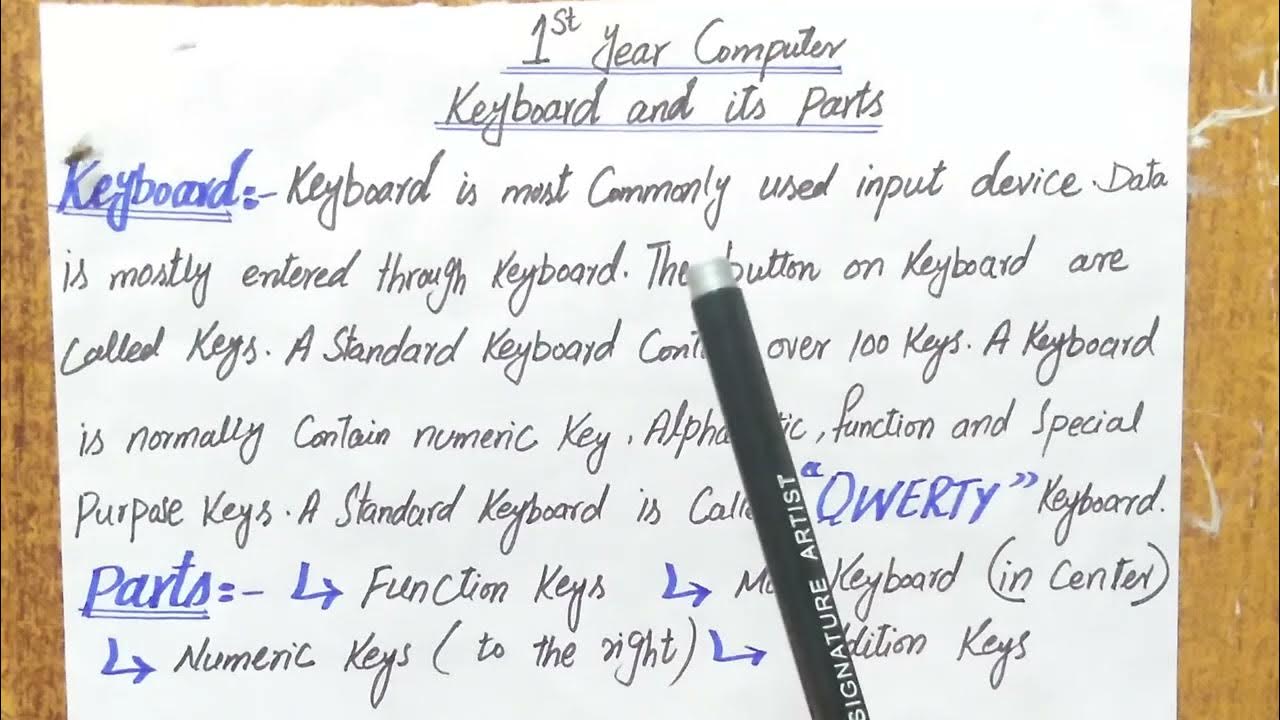 1st Year Computer
Keyboard and its Parts
Keyboard:- Keyboard is most Commonly used input device. Data
is mostly entered through Keyboard. The button on Keyboard are
Called Keys. A Standard Keyboard over 100 Keys. A Keyboard
is normally Contain numeric Key, , function and Special
Purpase Keys. A Standard Keyboard is "QWERTY" Keyboard.
Parts:- ↳ Function Keys ↳ Keyboard (in Center)
↳ Numeric Keys (to the right) ↳ Keys
SIGNATURE ARTIST